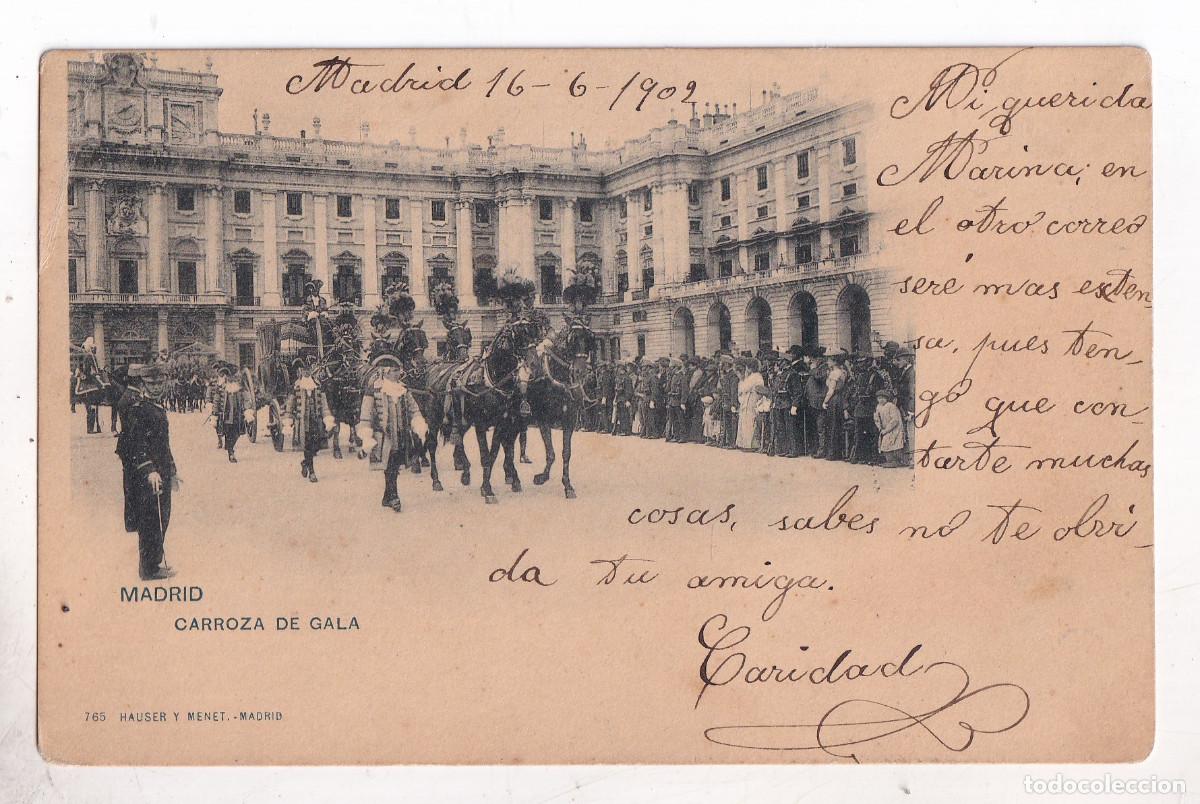 Madrid 16-6-1902
Mi querida
Marina; en
el otro correo
seré mas exten-
sa, pues ten-
go que con
tarte muchas
cosas, sabes no te olvi-
da tu amiga.
Caridad
MADRID
CARROZA DE GALA
765 HAUSER Y MENET.-MADRID
todocoleccion